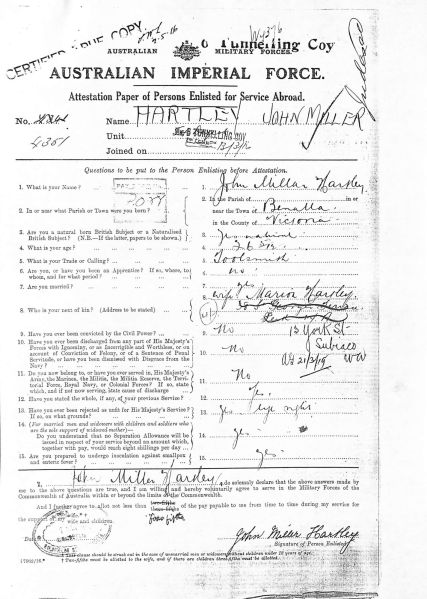 CERTIFIED TRUE COPY
Tunnelling Coy
AUSTRALIAN MILITARY FORCES.
AUSTRALIAN IMPERIAL FORCE.
Attestation Paper of Persons Enlisted for Service Abroad.
No. Name HARTLEY JOHN MILLER
4351 Unit
Joined on
Questions to be put to the Person Enlisting before Attestation.
1. What is your Name? 1. John Millar Hartley
2. In or near what Parish or Town were you born? 2. In the Parish of in or
near the Town of Benalla
in the County of Victoria
3. Are you a natural born British Subject or a Naturalised
British Subject? (N.B.—If the latter, papers to be shown.) 3.
4. What is your age? 4.
5. What is your Trade or Calling? 5. Toolsmith
6. Are you, or have you been an Apprentice? If so, where, to
whom, and for what period? 6. no
7. Are you married? 7. yes
8. Who is your next of kin? (Address to be stated) 8. wife Marion Hartley
15 York St
Subiaco
21/3/19 WA
9. Have you ever been convicted by the Civil Power? 9. No
10. Have you ever been discharged from any part of His Majesty's
Forces with Ignominy, or as Incorrigible and Worthless, or on
account of Conviction of Felony, or of a Sentence of Penal
Servitude, or have you been dismissed with Disgrace from the
Navy? 10. No
11. Do you now belong to, or have you ever served in, His Majesty's
Army, the Marines, the Militia, the Militia Reserve, the Terri-
torial Force, Royal Navy, or Colonial Forces? If so, state
which, and if not now serving, state cause of discharge 11. No
12. Have you stated the whole, if any, of your previous Service? 12. Yes
13. Have you ever been rejected as unfit for His Majesty's Service?
If so, on what grounds? 13. Yes eye sight
14. (For married men and widowers with children and soldiers who
are the sole support of widowed mother)—
Do you understand that no Separation Allowance will be
issued in respect of your service beyond an amount which,
together with pay, would reach eight shillings per day 14. yes
15. Are you prepared to undergo inoculation against smallpox
and enteric fever? 15. yes
I, John Miller Hartley, do solemnly declare that the above answers made by
me to the above questions are true, and I am willing and hereby voluntarily agree to serve in the Military Forces of the
Commonwealth of Australia within or beyond the limits of the Commonwealth.
And I further agree to allot not less than two-fifths of the pay payable to me from time to time during my service
for the support of my wife and children.
Date
John Miller Hartley
Signature of Person Enlisting.
* This clause should be struck out in the case of unmarried men or widowers without children under 18 years of age.
† Two-fifths must be allotted to the wife, and if there are children three-fifths must be allotted.